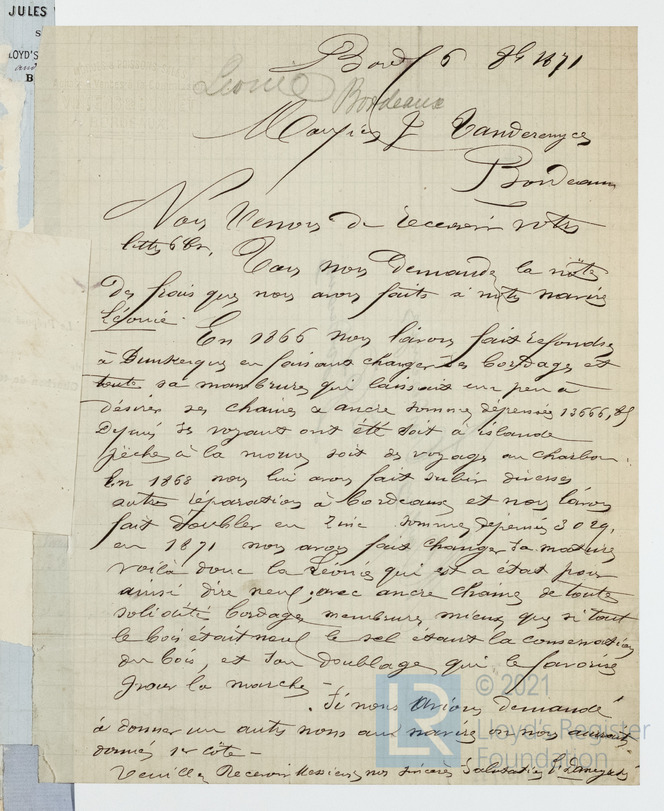 JULES
LOYD'S
and
B
Bord/ 6 1871
Léonie Bordeaux
Monsieur J
Bordeaux
Nous Venons de recevoir votre
lettre Vous nous Demandé la note
Des frais que nous avons faits a notre navire
Léonie.
En 1866 nous l'avons fait refondre
à Dunkerque en faisant changer ses bordages et
toute sa mambrures qui laissait un peu à
désirer ses chaines & ancre somme dépensée 13666,85
Depuis ses voyant ont été soit à islande
pêche à la morue soit des voyages au charbon.
En 1868 nous lui avons fait subir diverses
autres réparations à bordeaux et nous l'avons
fait doubler en Zinc somme 3029.
en 1871 nous avons fait changer sa mature
voilà donc la Léonie qui est a état pour
ainsi dire neuf, avec ancre chaines de toute
solidité bordages membrures mieux que si tout
le bois était neuf le sel étant la conservation
du bois, et son doublage qui le favorise
pour la marche -
Si nous avions demandé
à donner un autre nom au navire on nous aurait
donnés 1er côte -
Veuillez Recevoir Messieurs nos sincères Salutations
© 2021
LR
Lloyd's Register
Foundation